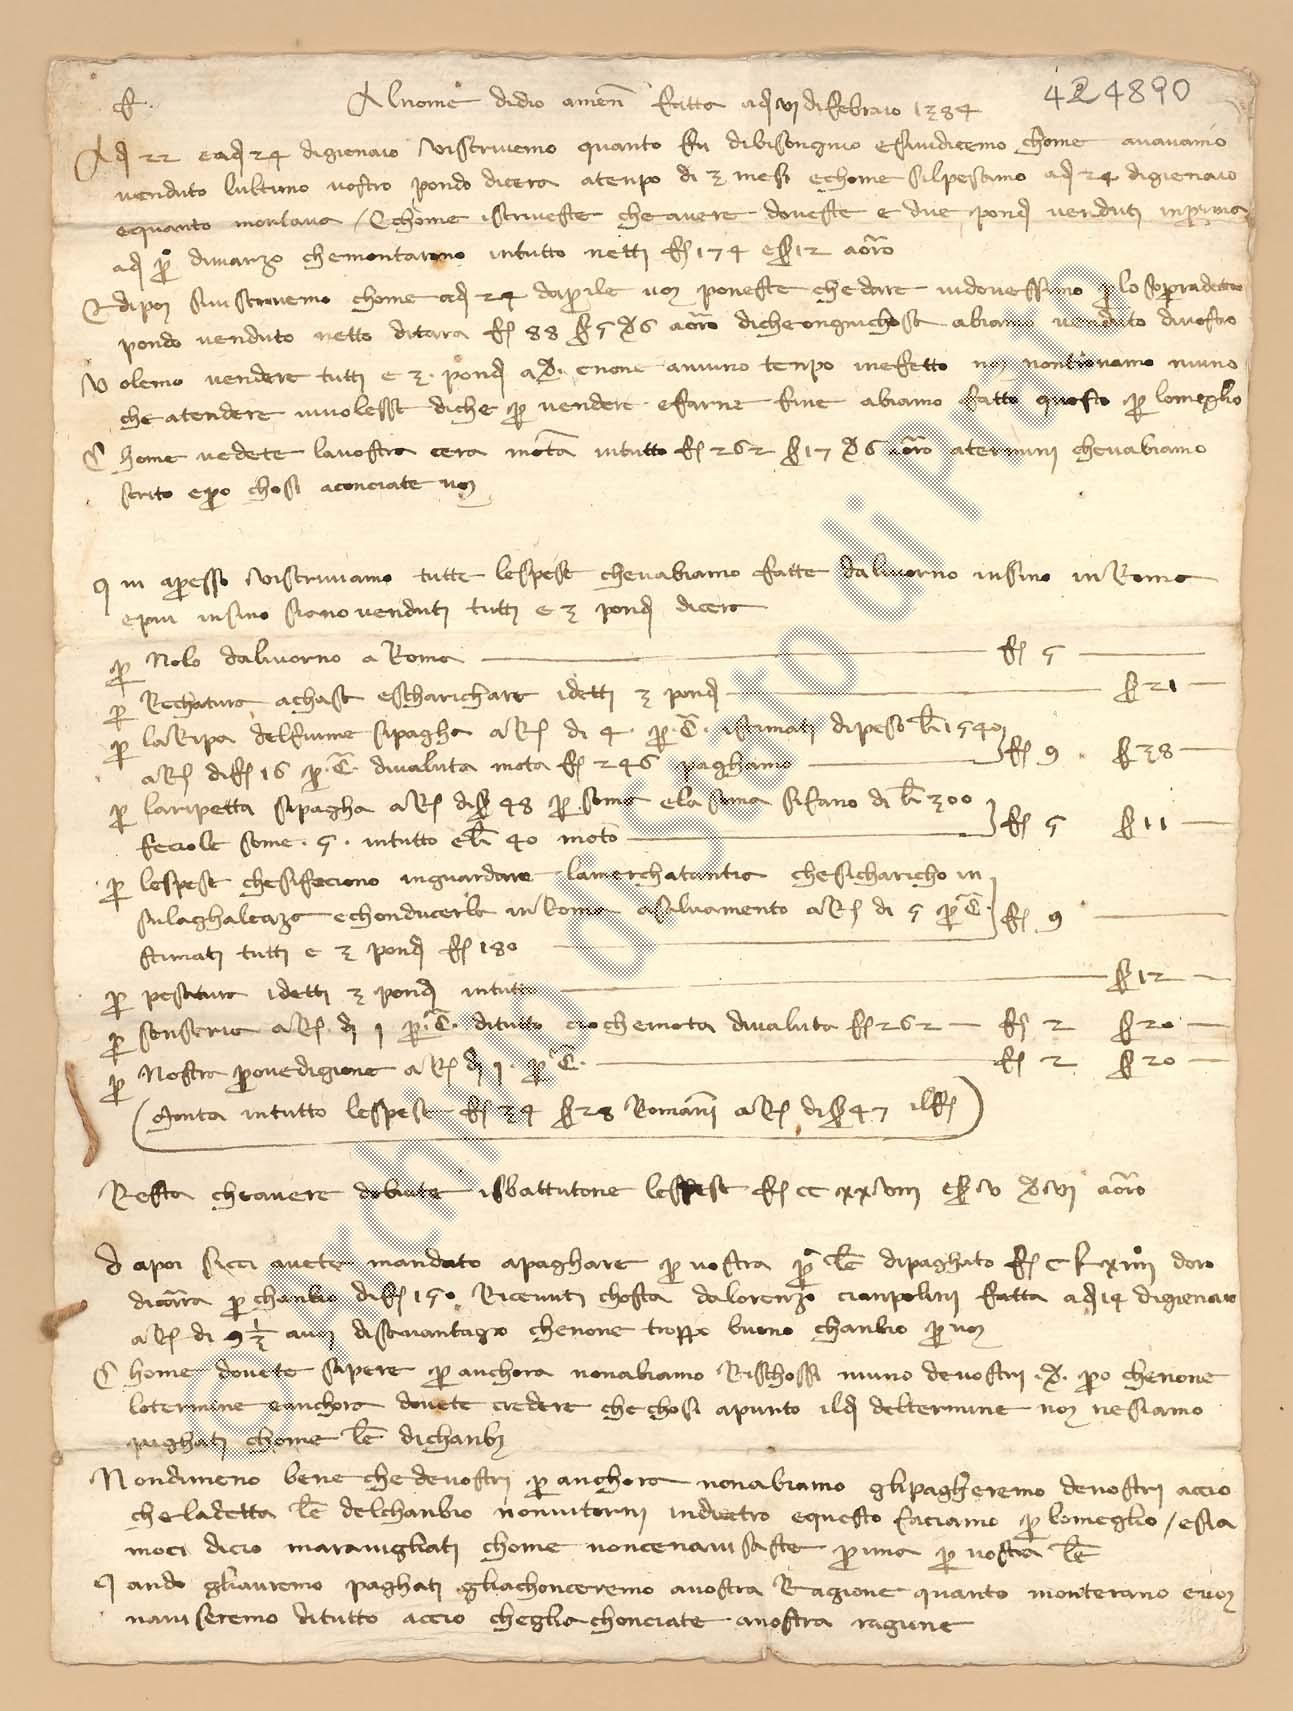 Al nome di dio amen fatta adj vj di febraio 1384
424890
Adj 22 e adj 24 di gienaio vi scrivemo quanto fu di bisongnio e sì vi dicemo chome avavamo
venduto l'ultimo vostro pondo di cera a tenpo di 3 mesi e chome si lpesamo adj 24 di gienaio
e quanto montava / E chome iscriveste che avere doveste e due pondj venduti in prima
adj po di marzo che montarono in tutto netti fj 174 e s 12 a oro
E di poi si vi scrivemo chome adj 24 d'aprile voj poneste che dare vi dovessimo p lo sopradetto
pondo venduto netto di tara fj 88 s 5 d 6 a oro di che ongni chosa abiamo venduto di vostro
Volemo vendere tutti e 3 pondj a d. e none a niuno tenpo in efetto noj non trovamo niuno
che atendere vi volesse di che p vendere e farne fine abiamo fatto questo p lo meglio
Chome vedete la vostra cera monta in tutto fj 262 s 17 d 6 a oro a termini che v'abiamo
scrito e po chosì aconciate voj
Qui apresso vi scriviamo tutte le spese che v'abiamo fatte da livorno insino in Roma
e piu insino siano venduti tutti e 3 pondj di cera
p Nolo da livorno a Roma fj 5
p Rechatura a chasa e scharichare i detti 3 pondj s 21
p la Ripa del fiume si pagha a Rj di 4 p C istimati di peso lb 1540
a Rj di fj 16 p C di valuta monta fj 246 paghamo fj 9 s 38
p la ripetta si pagha a Rj di s 48 p soma e la soma si fano di lb 300
feciole some 5 in tutto e lb 40 montò fj 5 s 11
p le spese che si feciono in guardare la merchatantia che si charichò in
su la ghaleazza e chonducerla in Roma a salvamento a Rj di 5 p C
stimati tutti e 3 pondj fj 180 fj 9
p pesatura i detti 3 pondj in tutto s 12
p senseria a Rj dj 1 p C di tutto ciò che monta di valuta fj 262 fj 2 s 20
p Nostra provedigione a Rj dj 1 p C fj 2 s 20
Monta in tutto le spese fj 34 s 28 Romani a Rj di s 47 il fj
Resta che avere dovete isbattutone le spese fj CCxxviii e s v d vj a oro
Da poi sicci avete mandato a paghare p vostra pa le di paghato fj C d'oro
di p chanbio di fj 150 Ricevuti chostà da lorenzo cianpolini fatta adj 14 di gienaio
a Rj di 9 1/2 a voj di savantagio che none troppo buono chanbio p voj
Chome dovete sapere p anchora non abiamo Rischossi niuno de vostri d. pò che none
lo termine e anchora dovete credere che chosì apunto il dj del termine noj ne siamo
paghati chome le di chanbj
Nondimeno bene che de vostri p anchora non abiamo gli pagheremo de nostri acciò
che la detta le del chanbio non vi torni in dietro e questo faciamo p lo meglio / e sia
moci di ciò maravigliati chome non ce n'avisaste prima p vostra le
Quando gli avremo paghati gli achonceremo a vostra Ragione quanto monterano e voj
n'aviseremo di tutto acciò che gli achonciate a nostra ragione